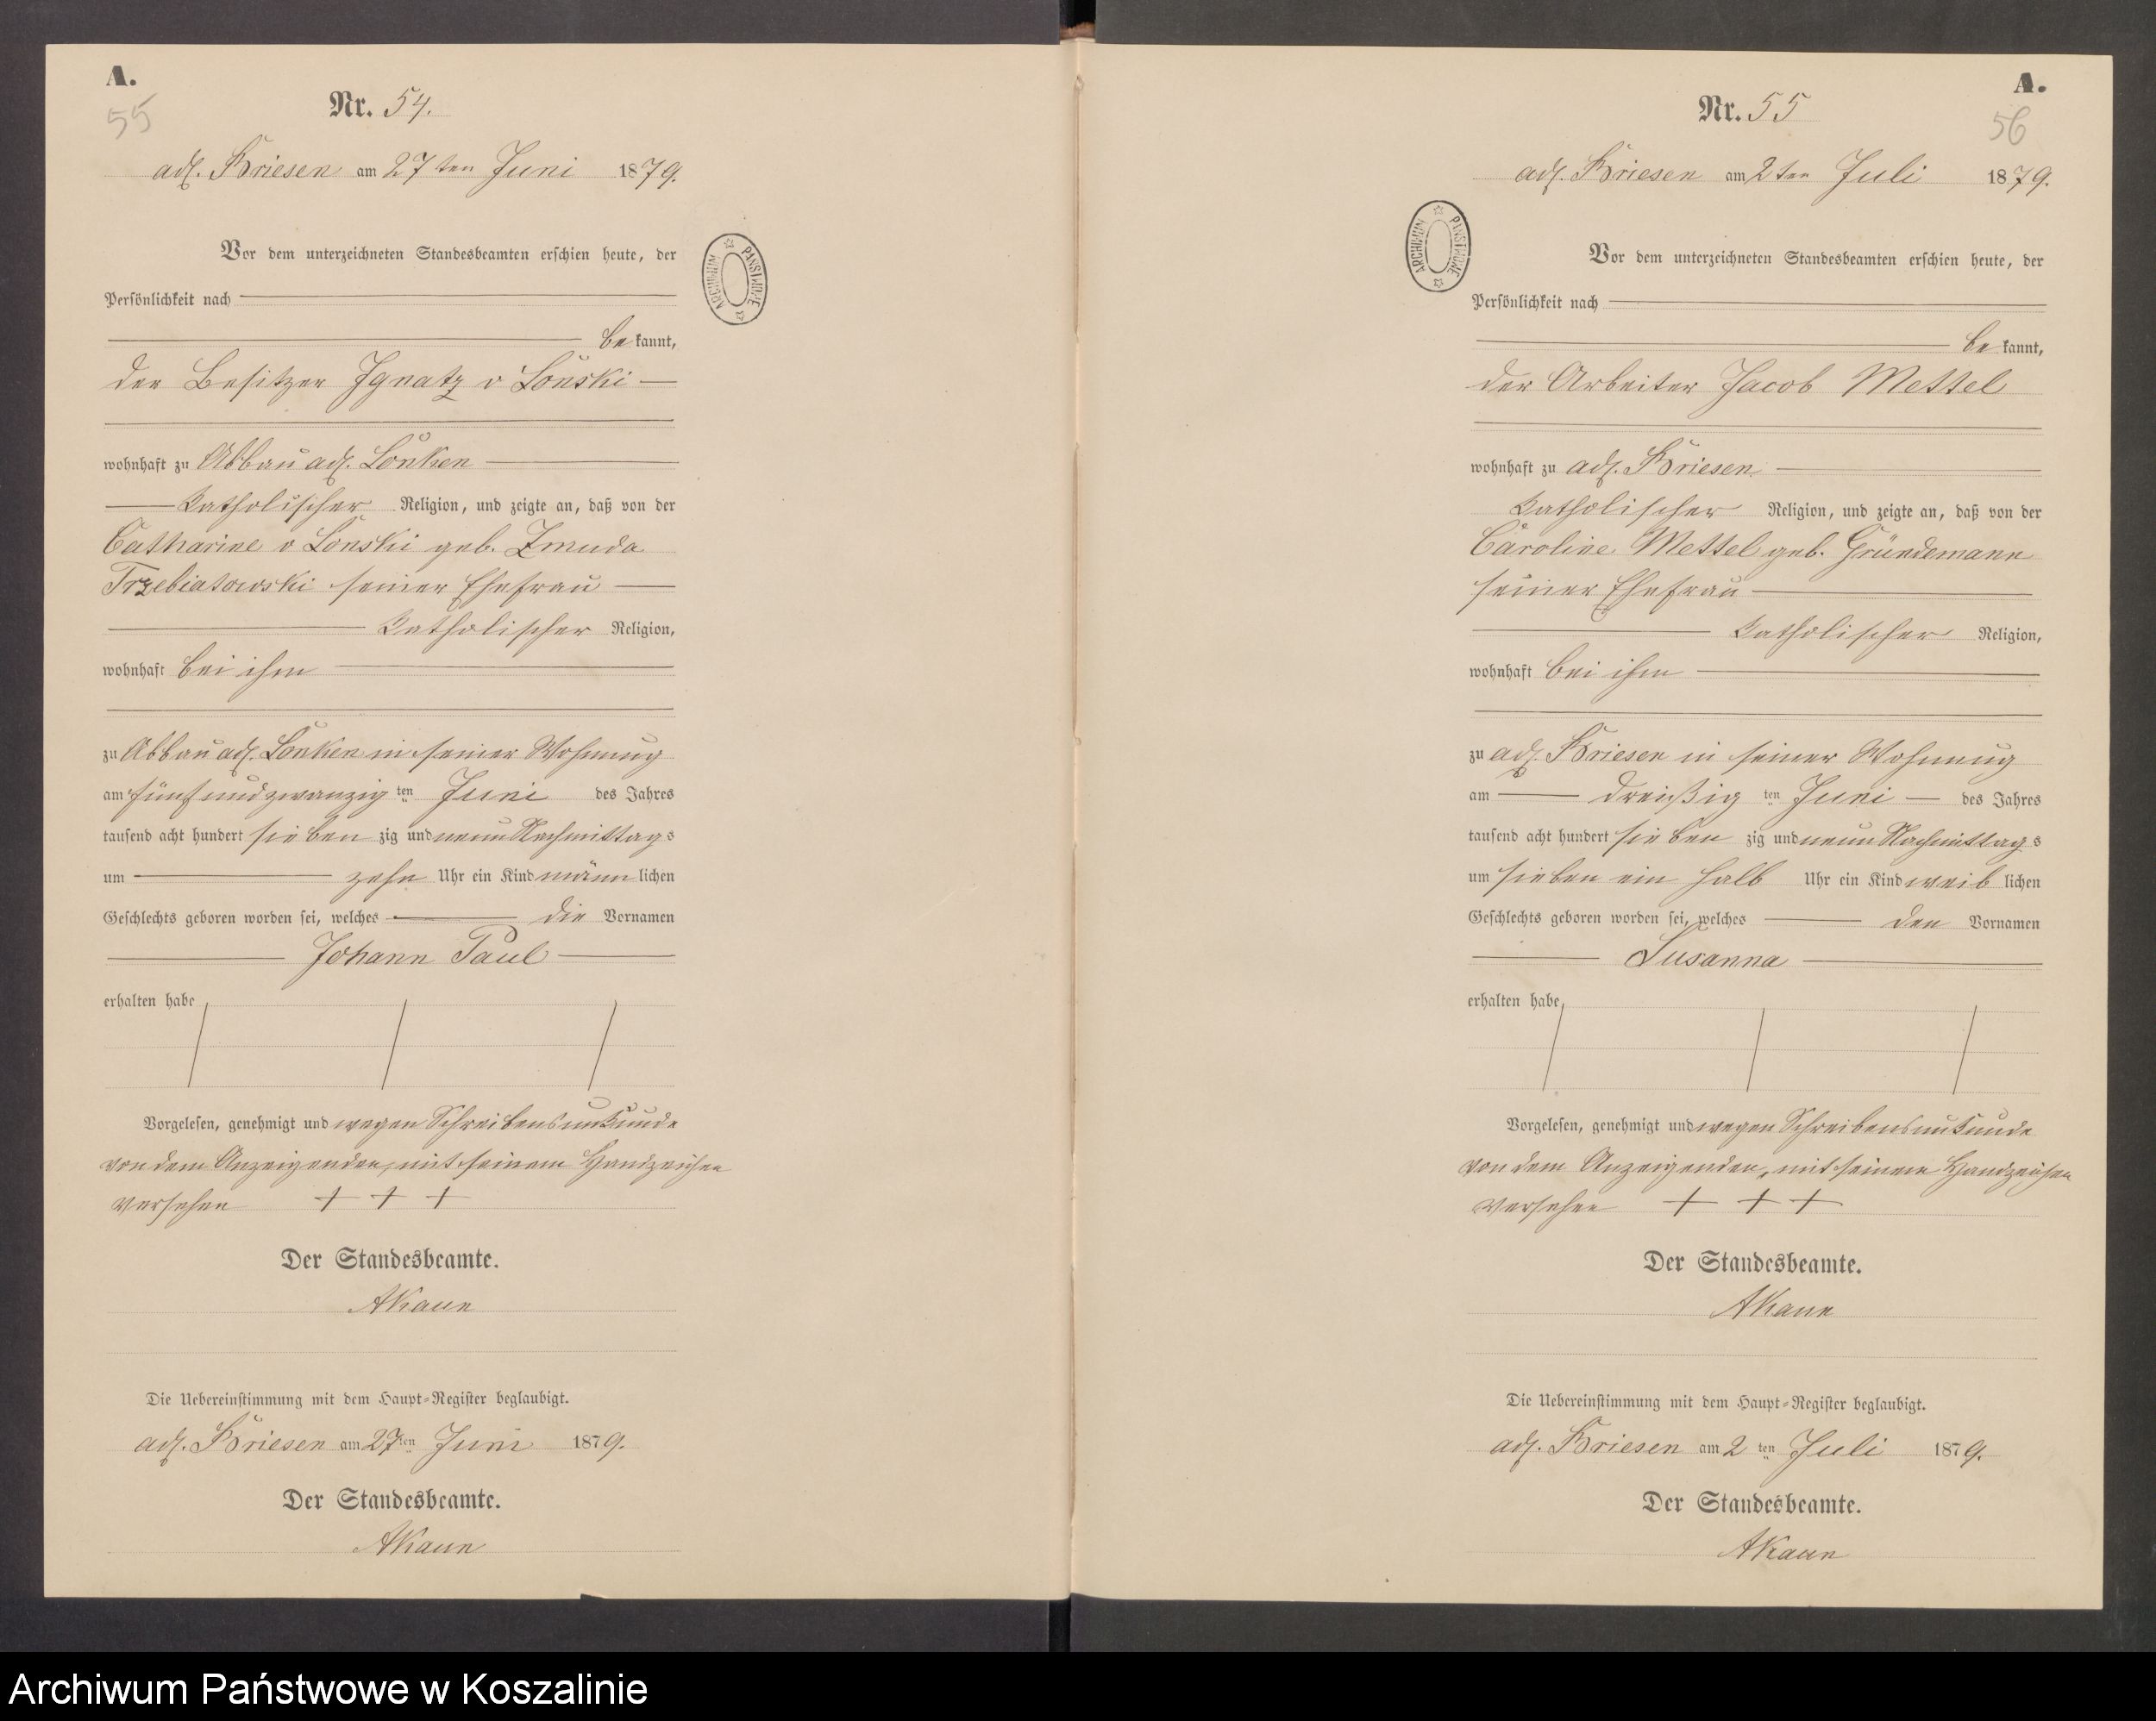 A.
55
Nr. 54.
adl. Briesen am 27ten Juni 1879.
Vor dem unterzeichneten Standesbeamten erschien heute, der
Persönlichkeit nach
bekannt,
der Besitzer Ignatz v Lonski
wohnhaft zu Abbau adl. Lonken
katholischer Religion, und zeigte an, daß von der
Catharine v Lonski geb. Zmuda
Trzebiatowski seiner Ehefrau
katholischer Religion,
wohnhaft bei ihm
zu Abbau adl. Lonken in seiner Wohnung
am fünfundzwanzig ten Juni des Jahres
tausend acht hundert siebenzig und neun Nachmittags
um zehn Uhr ein Kind männlichen
Geschlechts geboren worden sei, welches die Vornamen
Johann Paul
erhalten habe
Vorgelesen, genehmigt und wegen Schreibensunkunde
von dem Anzeigenden, mit seinem Handzeichen
versehen + + +
Der Standesbeamte.
Die Uebereinstimmung mit dem Haupt-Register beglaubigt.
adl. Briesen am 27ten Juni 1879.
Der Standesbeamte.
ARCHIWUM PAŃSTWOWE
A.
56
Nr. 55
adl. Briesen am 2ten Juli 1879.
Vor dem unterzeichneten Standesbeamten erschien heute, der
Persönlichkeit nach
bekannt,
der Arbeiter Jacob Mettel
wohnhaft zu adl. Briesen
katholischer Religion, und zeigte an, daß von der
Caroline Mettel geb. Gründemann
seiner Ehefrau
katholischer Religion,
wohnhaft bei ihm
zu adl. Briesen in seiner Wohnung
am dreißig ten Juni des Jahres
tausend acht hundert siebenzig und neun Nachmittags
um sieben ein halb Uhr ein Kind weiblichen
Geschlechts geboren worden sei, welches den Vornamen
Susanna
erhalten habe
Vorgelesen, genehmigt und wegen Schreibensunkunde
von dem Anzeigenden, mit seinem Handzeichen
versehen + + +
Der Standesbeamte.
Die Uebereinstimmung mit dem Haupt-Register beglaubigt.
adl. Briesen am 2ten Juli 1879.
Der Standesbeamte.
ARCHIWUM PAŃSTWOWE
Archiwum Państwowe w Koszalinie